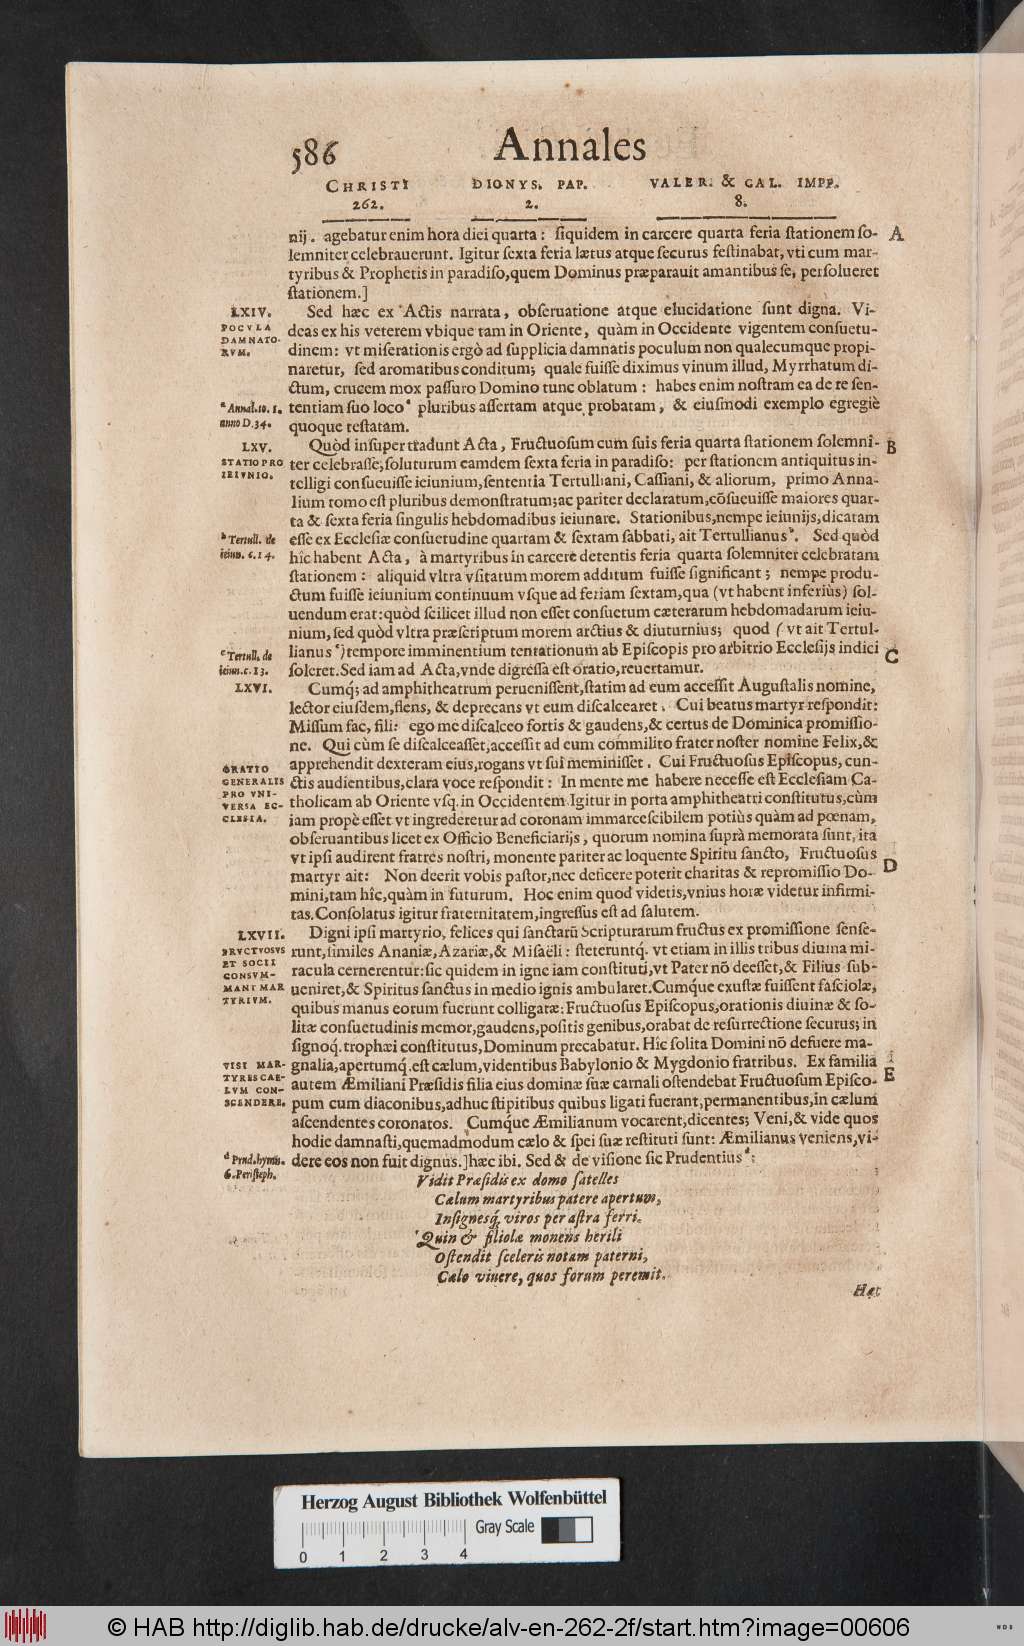 586
Annales
CHRISTI
262.
DIONYS. PAP.
2.
VALER. & GAL. IMPP.
8.
nij. agebatur enim hora diei quarta: siquidem in carcere quarta feria stationem so-
A
lemniter celebrauerunt. Igitur sexta feria lætus atque securus festinabat, vti cum mar-
tyribus & Prophetis in paradiso, quem Dominus præparauit amantibus se, persolueret
stationem.]
LXIV.
POCVLA
DAMNATO-
RVM.
Sed hæc ex Actis narrata, obseruatione atque elucidatione sunt digna. Vi-
deas ex his veterem vbique tam in Oriente, quàm in Occidente vigentem consuetu-
dinem: vt miserationis ergò ad supplicia damnatis poculum non qualecumque propi-
naretur, sed aromatibus conditum; quale fuisse diximus vinum illud, Myrrhatum di-
ctum, crucem mox passuro Domino tunc oblatum: habes enim nostram ea de re sen-
a Annal. to. 1.
anno D. 34.
tentiam suo loco a pluribus assertam atque probatam, & eiusmodi exemplo egregiè
quoque testatam.
LXV.
STATIO PRO
IEIVNIO.
Quòd insuper tradunt Acta, Fructuosum cum suis feria quarta stationem solemni-
B
ter celebrasse, soluturum eamdem sexta feria in paradiso: per stationem antiquitus in-
telligi consueuisse ieiunium, sententia Tertulliani, Cassiani, & aliorum, primo Anna-
lium tomo est pluribus demonstratum; ac pariter declaratum, cõsueuisse maiores quar-
ta & sexta feria singulis hebdomadibus ieiunare. Stationibus, nempe ieiunijs, dicatam
b Tertull. de
ieiun. c. 14.
esse ex Ecclesiæ consuetudine quartam & sextam sabbati, ait Tertullianus b. Sed quòd
hîc habent Acta, à martyribus in carcere detentis feria quarta solemniter celebratam
stationem: aliquid vltra vsitatum morem additum fuisse significant; nempe produ-
ctum fuisse ieiunium continuum vsque ad feriam sextam, qua (vt habent inferiùs) sol-
uendum erat: quòd scilicet illud non esset consuetum cæterarum hebdomadarum ieiu-
nium, sed quòd vltra præscriptum morem arctius & diuturnius; quod (vt ait Tertul-
c Tertull. de
ieiun. c. 13.
lianus c) tempore imminentium tentationum ab Episcopis pro arbitrio Ecclesijs indici
C
soleret. Sed iam ad Acta, vnde digressa est oratio, reuertamur.
LXVI.
Cumq; ad amphitheatrum peruenissent, statim ad eum accessit Augustalis nomine,
lector eiusdem, flens, & deprecans vt eum discalcearet. Cui beatus martyr respondit:
Missum fac, fili: ego me discalceo fortis & gaudens, & certus de Dominica promissio-
ne. Qui cùm se discalceasset, accessit ad eum commilito frater noster nomine Felix, &
ORATIO
GENERALIS
PRO VNI-
VERSA EC-
CLESIA.
apprehendit dexteram eius, rogans vt sui meminisset. Cui Fructuosus Episcopus, cun-
ctis audientibus, clara voce respondit: In mente me habere necesse est Ecclesiam Ca-
tholicam ab Oriente vsq. in Occidentem. Igitur in porta amphitheatri constitutus, cùm
iam propè esset vt ingrederetur ad coronam immarcescibilem potiùs quàm ad pœnam,
obseruantibus licet ex Officio Beneficiarijs, quorum nomina suprà memorata sunt, ita
vt ipsi audirent fratres nostri, monente pariter ac loquente Spiritu sancto, Fructuosus
martyr ait: Non deerit vobis pastor, nec deficere poterit charitas & repromissio Do-
D
mini, tam hîc, quàm in futurum. Hoc enim quod videtis, vnius horæ videtur infirmi-
tas. Consolatus igitur fraternitatem, ingressus est ad salutem.
LXVII.
FRVCTVOSVS
ET SOCII
CONSVM-
MANT MAR
TYRIVM.
Digni ipsi martyrio, felices qui sanctarũ Scripturarum fructus ex promissione sense-
runt, similes Ananiæ, Azariæ, & Misaëli: steteruntq. vt etiam in illis tribus diuina mi-
racula cernerentur: sic quidem in igne iam constituti, vt Pater nõ deesset, & Filius sub-
ueniret, & Spiritus sanctus in medio ignis ambularet. Cumque exustæ fuissent fasciolæ,
quibus manus eorum fuerunt colligatæ: Fructuosus Episcopus, orationis diuinæ & so-
litæ consuetudinis memor, gaudens, positis genibus, orabat de resurrectione securus; in
signoq. trophæi constitutus, Dominum precabatur. Hic solita Domini nõ defuere ma-
VISI MAR-
TYRES CAE-
LVM CON-
SCENDERE.
gnalia, apertumq. est cælum, videntibus Babylonio & Mygdonio fratribus. Ex familia
autem Æmiliani Præsidis filia eius dominæ suæ carnali ostendebat Fructuosum Episco-
E
pum cum diaconibus, adhuc stipitibus quibus ligati fuerant, permanentibus, in cælum
ascendentes coronatos. Cumque Æmilianum vocarent, dicentes; Veni, & vide quos
hodie damnasti, quemadmodum cælo & spei suæ restituti sunt: Æmilianus veniens, vi-
d Prud. hymn.
6. Peristeph.
dere eos non fuit dignus.] hæc ibi. Sed & de visione sic Prudentius d:
Vidit Præsidis ex domo satelles
Cælum martyribus patere apertum,
Insignesq. viros per astra ferri.
Quin & filiolæ monens herili
Ostendit sceleris notam paterni,
Cælo viuere, quos forum peremit.
Hæc
Herzog August Bibliothek Wolfenbüttel
Gray Scale
0 1 2 3 4
© HAB http://diglib.hab.de/drucke/alv-en-262-2f/start.htm?image=00606